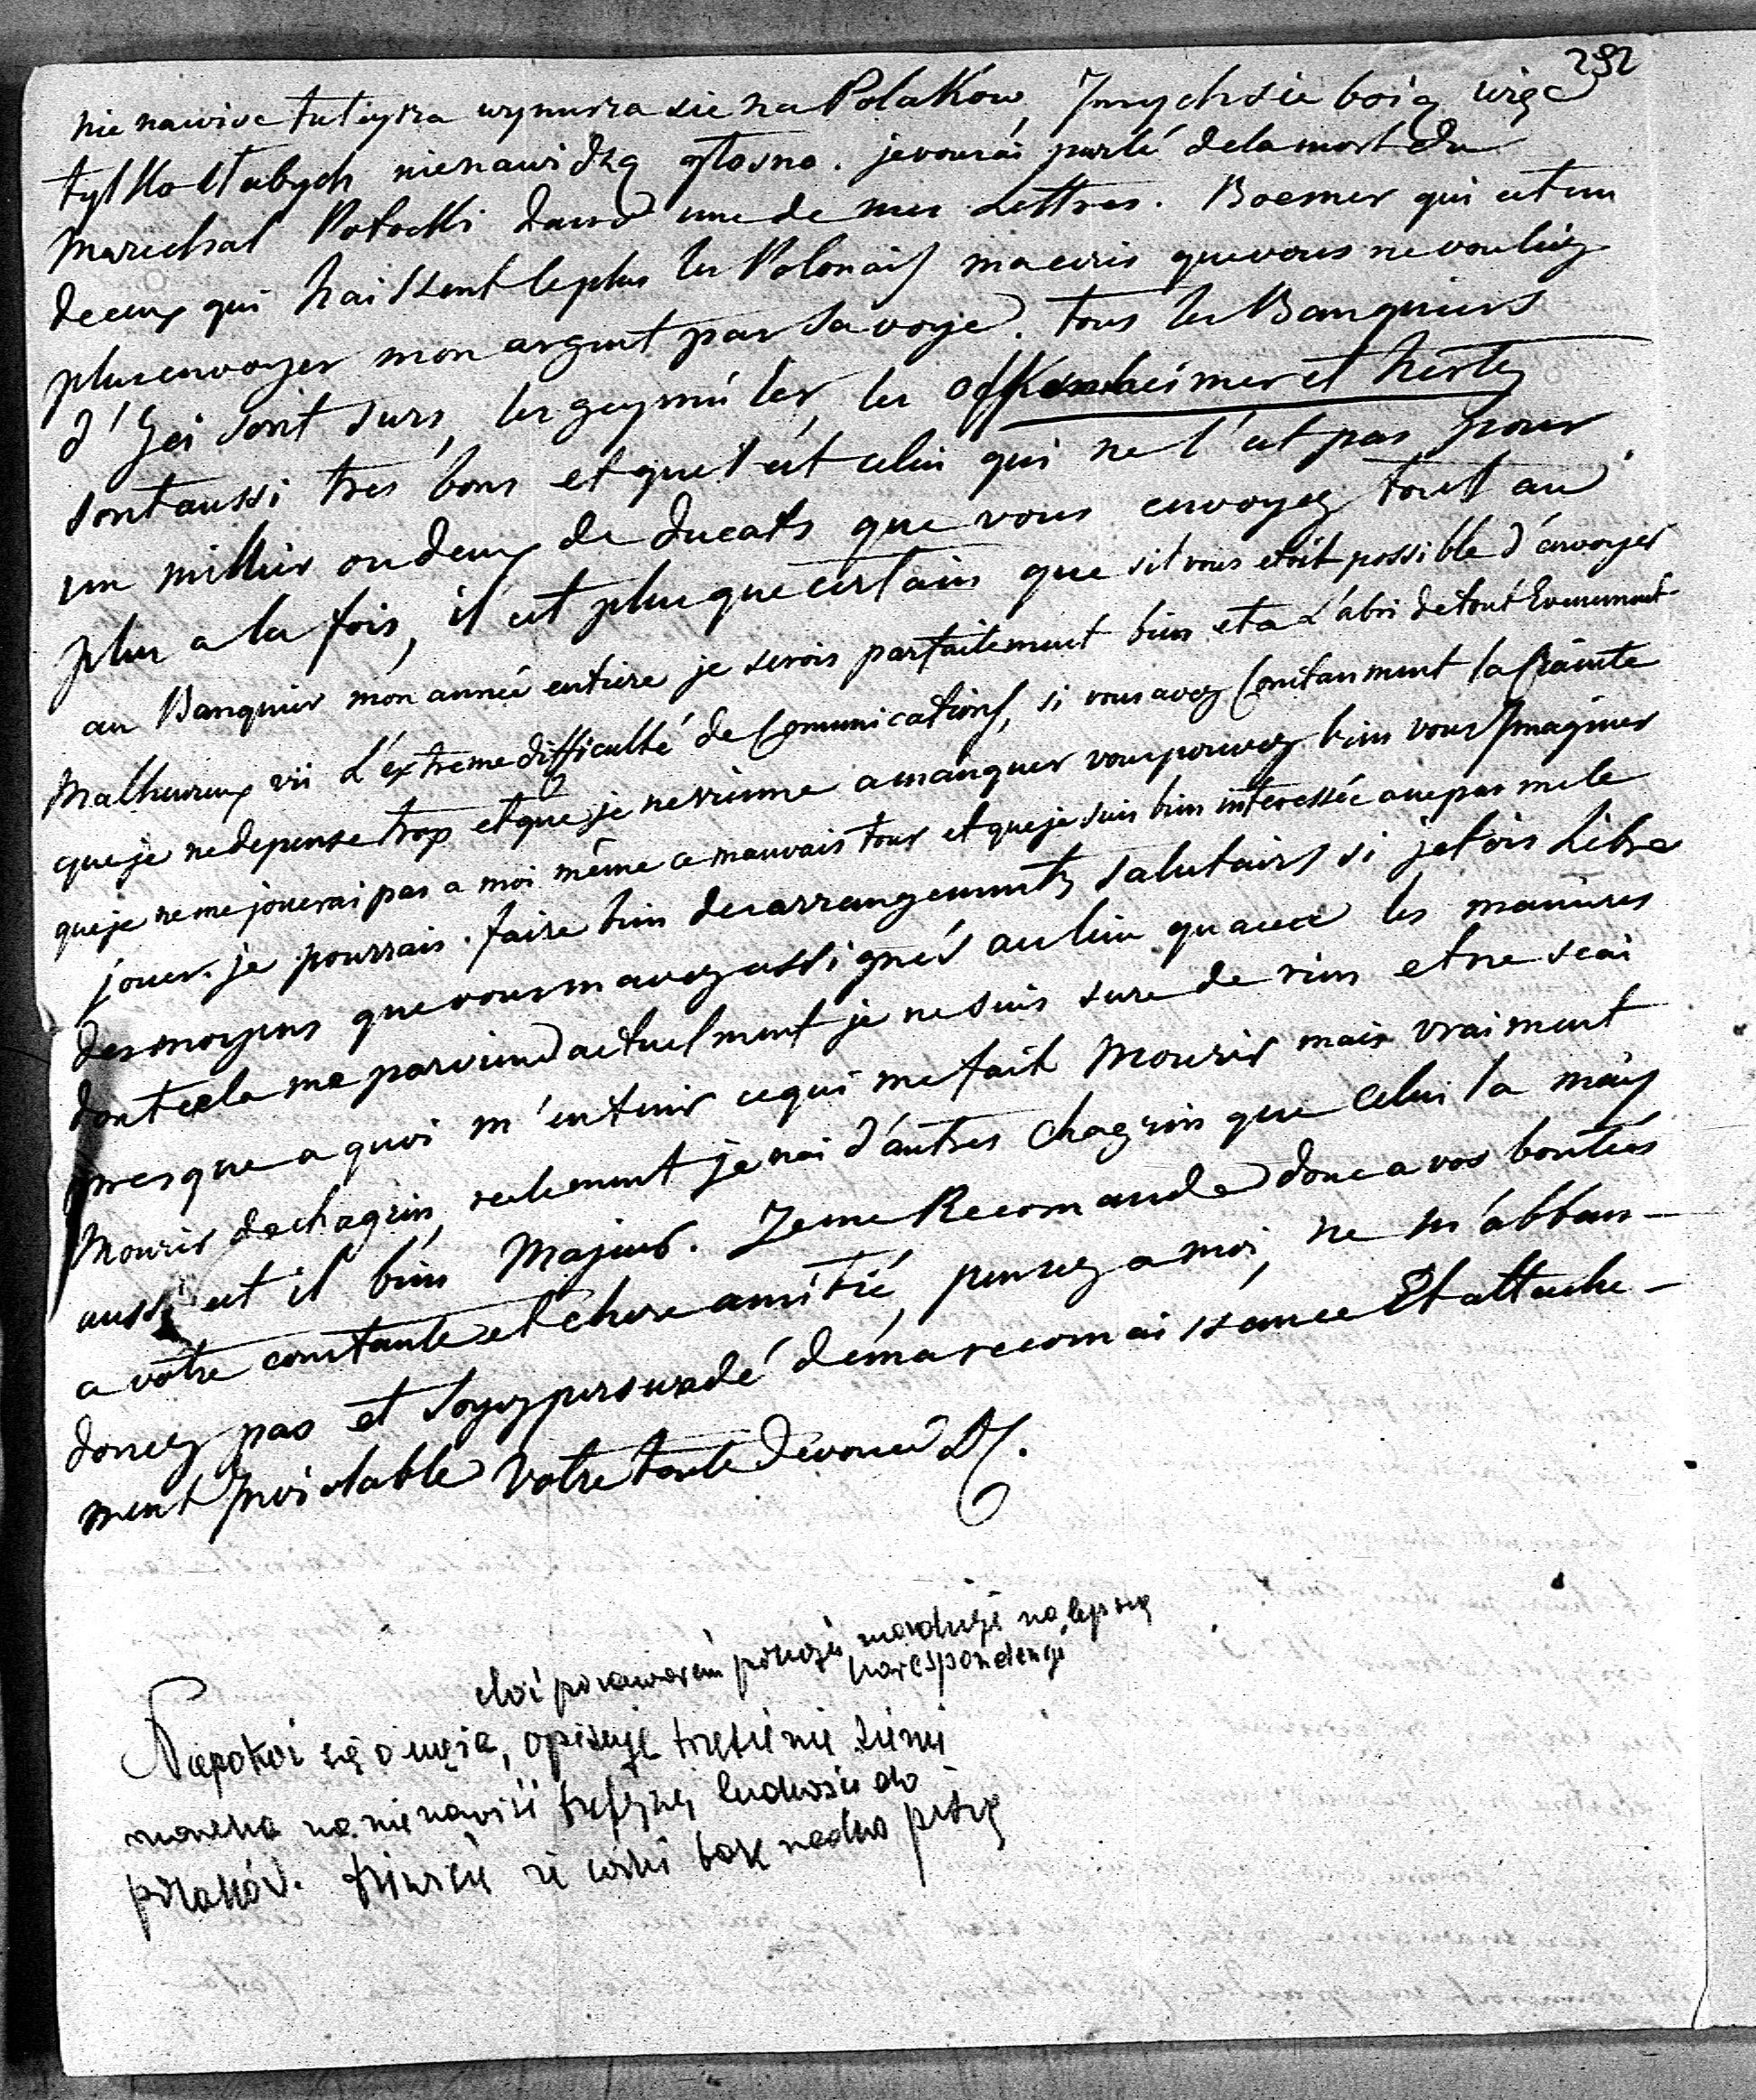 292
nienawisc tuteysza wynurza sie na Polakow, Jnnych sie boią więc
tylko słabych nienawidzą głosno. je vous ai parlé de la mort du
Marechal Potocki dans une de mes Lettres. Boemer qui est un
de ceux qui haissent le plus les Polonais m'a ecris que vous ne vouliez
plus envoyer mon argent par sa voye. tous les Banquiers
d'Jci sont surs, les geymüler, les Offenheimer et herts
sont aussi tres bons et quel est celui qui ne l'est pas pour
un millier ou deux de ducats que vous envoyez tout au
plus a la fois, il est plus que certain que s'il vous etoit possible d'envoyer
au Banquier mon année entiere je serois parfaitement bien et a L'abri de tout Evenement
Malheureux vû L'extreme difficulté de Comunications, si vous avez Constanment la Crainte
que je ne depense trop et que je ne vienne a manquer vous pouvez bien vous Jmaginer
que je ne me jouerai pas a moi même ce mauvais tour et que je suis bien interessée a ne pas me le
jouer. je pourrais faire bien des arrangements salutairs si j'etois Libre
des moyens que vous m'avez assignés au lieu qu'avec les manieres
dont cela me parvient actuelment je ne suis sure de rien et ne scai
presque a quoi m'en tenir ce qui me fait Mourir mais vraiment
Mourir de chagrin, reelement je n'ai d'autres chagrins que celui la mais
aussi est il bien Majeur. Je me Recomande donc a vos bontées
a votre constante et chere amitié, pensez a moi, ne m'abban-
donez pas et soyez persuadé de ma reconnaissance Et attache-
ment Jnviolable Votre tante devouée
choć porewaren pokoju na lepszą
korespondencję
Niepokoi się o męża, opisuje trzęsienie ziemi
narzeka na nienawiść tutejszej ludności do
polaków. że rzadko piszę